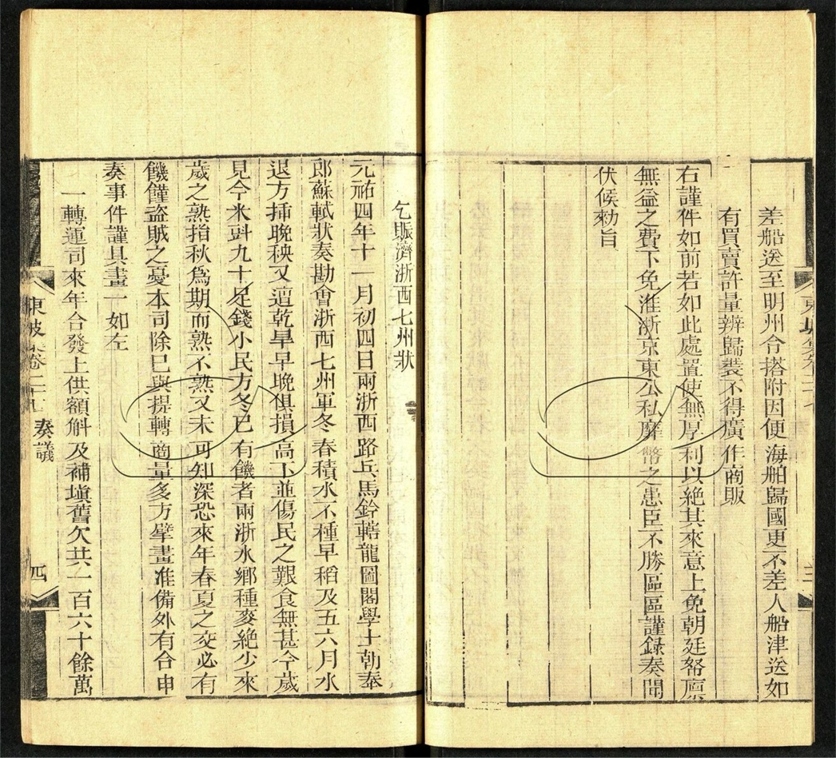 差船送至明州令搭附因便海舶歸國更不差人船津送如
有買賣許量辦歸裝不得廣作商販
右謹件如前若如此處置使無厚利以絕其來意上免朝廷帑廩
無益之費下免淮浙京東公私靡幣之患臣不勝區區謹録奏聞
伏候勑旨
三
乞賑濟浙西七州狀
元祐四年十一月初四日兩浙西路兵馬鈐轄龍圖閣學士朝奉
郎蘇軾狀奏勘會浙西七州軍冬春積水不種早稻及五六月水
退方挿晚秧又遭乾旱早晚俱損高下並傷民之艱食無甚今歲
見今米㪷九十足錢小民方冬已有饑者兩浙水鄉種麥絶少來
歲之熟指秋爲期而熟不熟又未可知深恐來年春夏之交必有
饑饉盜賊之憂本司除已與提轉商量多方擘畫准備外有合申
奏事件謹具畫一如左
一轉運司來年合發上供額斛及補塡舊欠共一百六十餘萬
東坡集卷二十七 奏議
四